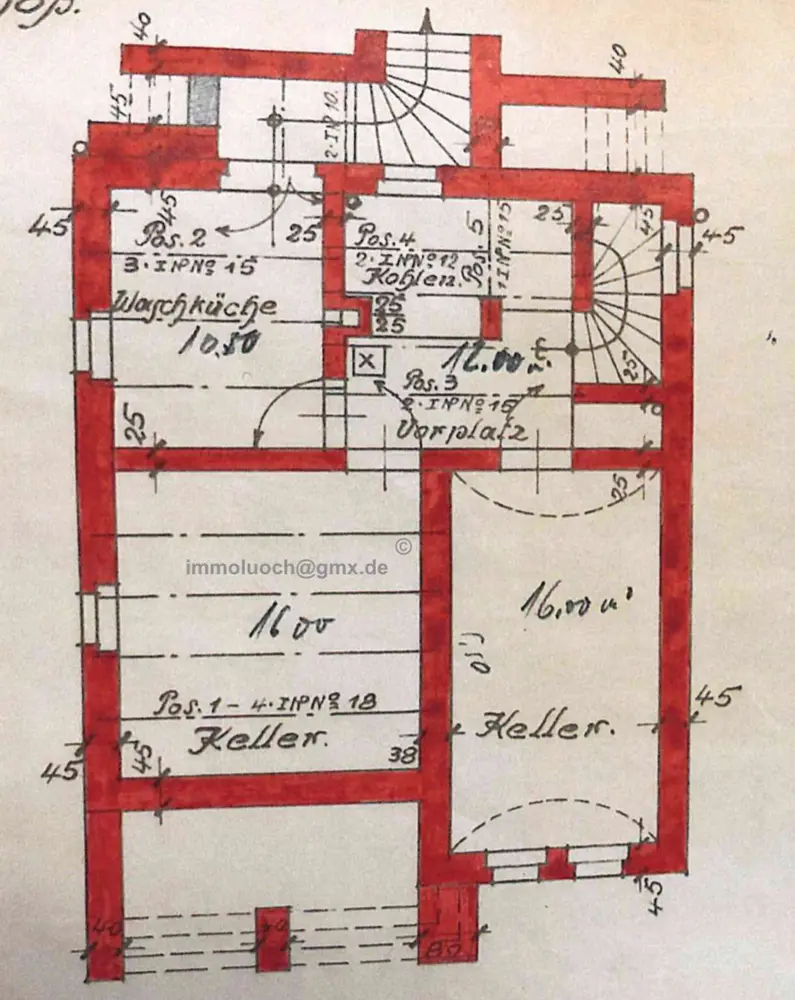 40
40
45
2·INP 10.
45
45
25
25
45
45
Pos. 2
3·INPNº 15
Pos. 4
2·INPNº 12
Kohlen.
Pos. 5
1 INPNº 15
Waschküche
10.50
25
25
12.00 m²
25
Pos. 3
2·INPNº 16
Vorplatz
25
25
immoluoch@gmx.de ©
16 00
16,00 m²
Pos. 1 – 4·INPNº 18
Keller.
Keller.
45
45
45
38
45
40
40